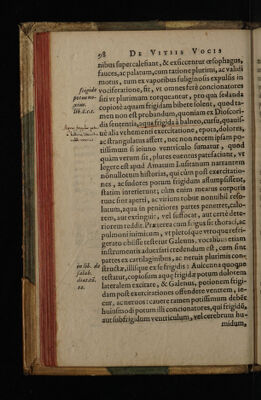 98 DE VITIIS VOCIS
nibus supercalefiant, & exsiccentur œsophagus,
fauces, ac palatum, cum ratione plurimi, ac validi
motus, tum ex vaporibus fuliginosis expulsis in
vociferatione, fit, vt omnes ferè concionatores
siti vt plurimum torqueantur, pro qua sedanda
copiosè aquam frigidam bibere solent, quod ta-
men non est probandum, quoniam ex Dioscori
dis sententia, aqua frigida à balneo, cursu, quauis-
uè alia vehementi exercitatione, epota, dolores,
ac strangulatus affert, nec non necem ipsam po-
tissimum si ieiuno ventriculo sumatur, quod
quàm verum sit, plures euentus patefaciunt, vt
legere est apud Amatum Lusitanum narrantem
nonnullorum historias, qui cùm post exercitatio-
nes, ac sudores potum frigidum assumpsissent,
statim interierunt; cùm enim meatus corporis
tunc sint aperti, ac virium robur nonnihil reso-
lutum, aqua in penitiores partes penetret, calo-
rem, aut extinguit, vel suffocat, aut certè dete-
riorem reddit. Præterea cum frigus sit thoraci, ac
pulmoni inimicum, vt pletorque vtroque refri-
gerato obiisse testetur Galenus, vocabus etiam
instrumentis aduersari credendum est, cum sint
partes ex cartilaginibus, ac neruis plurimis con-
structæ, illisque ex se frigidis: Auicenna quoque
testatur, copiosum aquę frigidæ potum dolorem
lateralem excitare, & Galenus, potionem frigi-
dam post exercitationes offendere ventrem, ie-
cur, ac neruos: cauere tamen potissimum debēt
huiusmodi potum illi concionatores, qui frigidū,
aut subfrigidum ventriculum, vel cerebrum hu-
midum,
frigido
potus no-
xius.
in lib. de
salub.